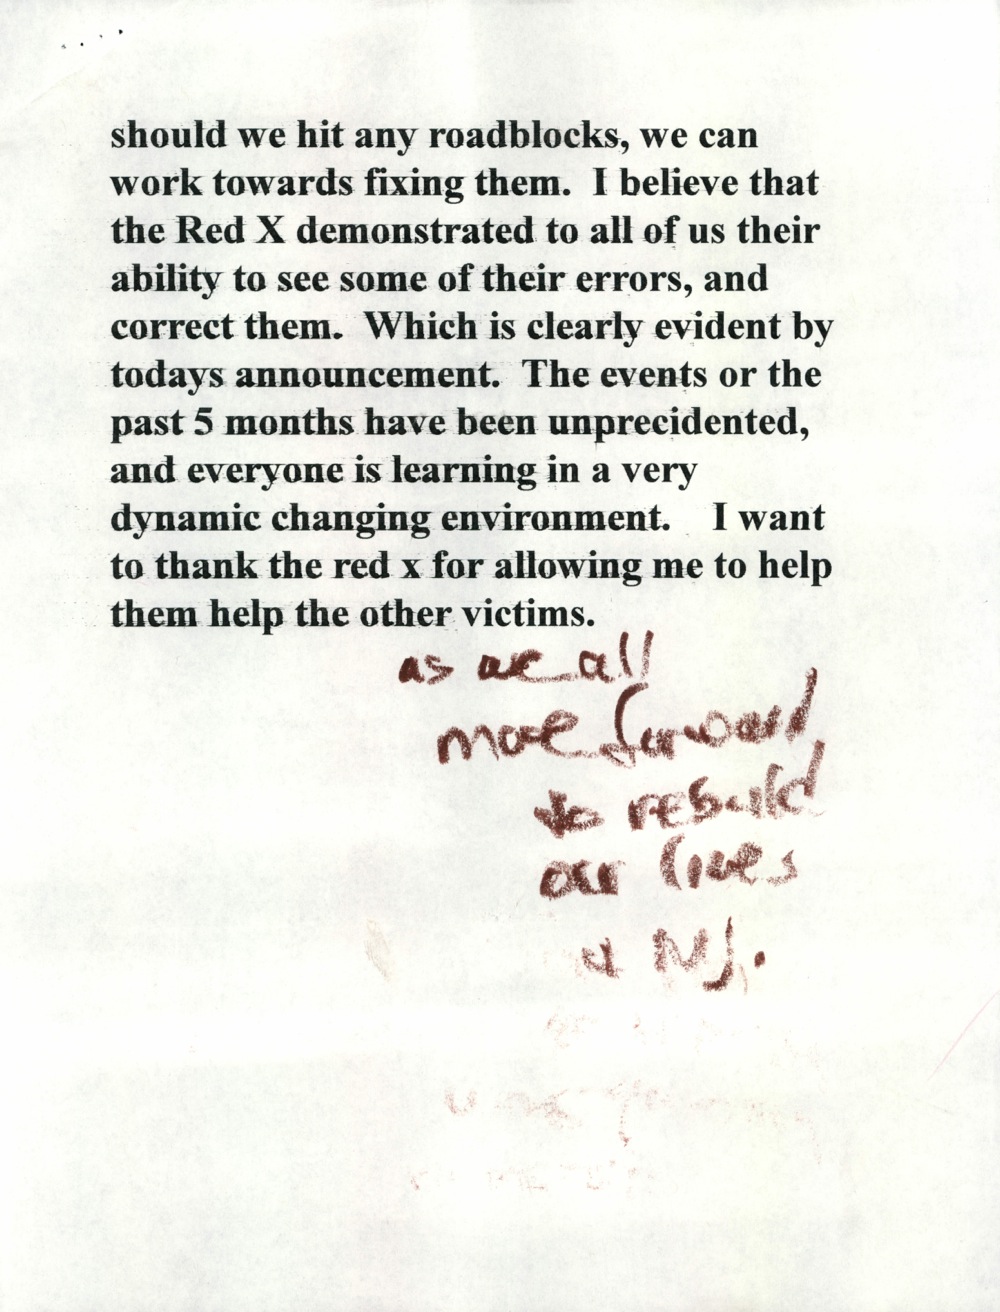 should we hit any roadblocks, we can
work towards fixing them.  I believe that
the Red X demonstrated to all of us their
ability to see some of their errors, and
correct them.  Which is clearly evident by
todays announcement.  The events or the
past 5 months have been unprecidented,
and everyone is learning in a very
dynamic changing environment.    I want
to thank the red x for allowing me to help
them help the other victims.
as we all
move forward
to rebuild
our lives
& NJ.